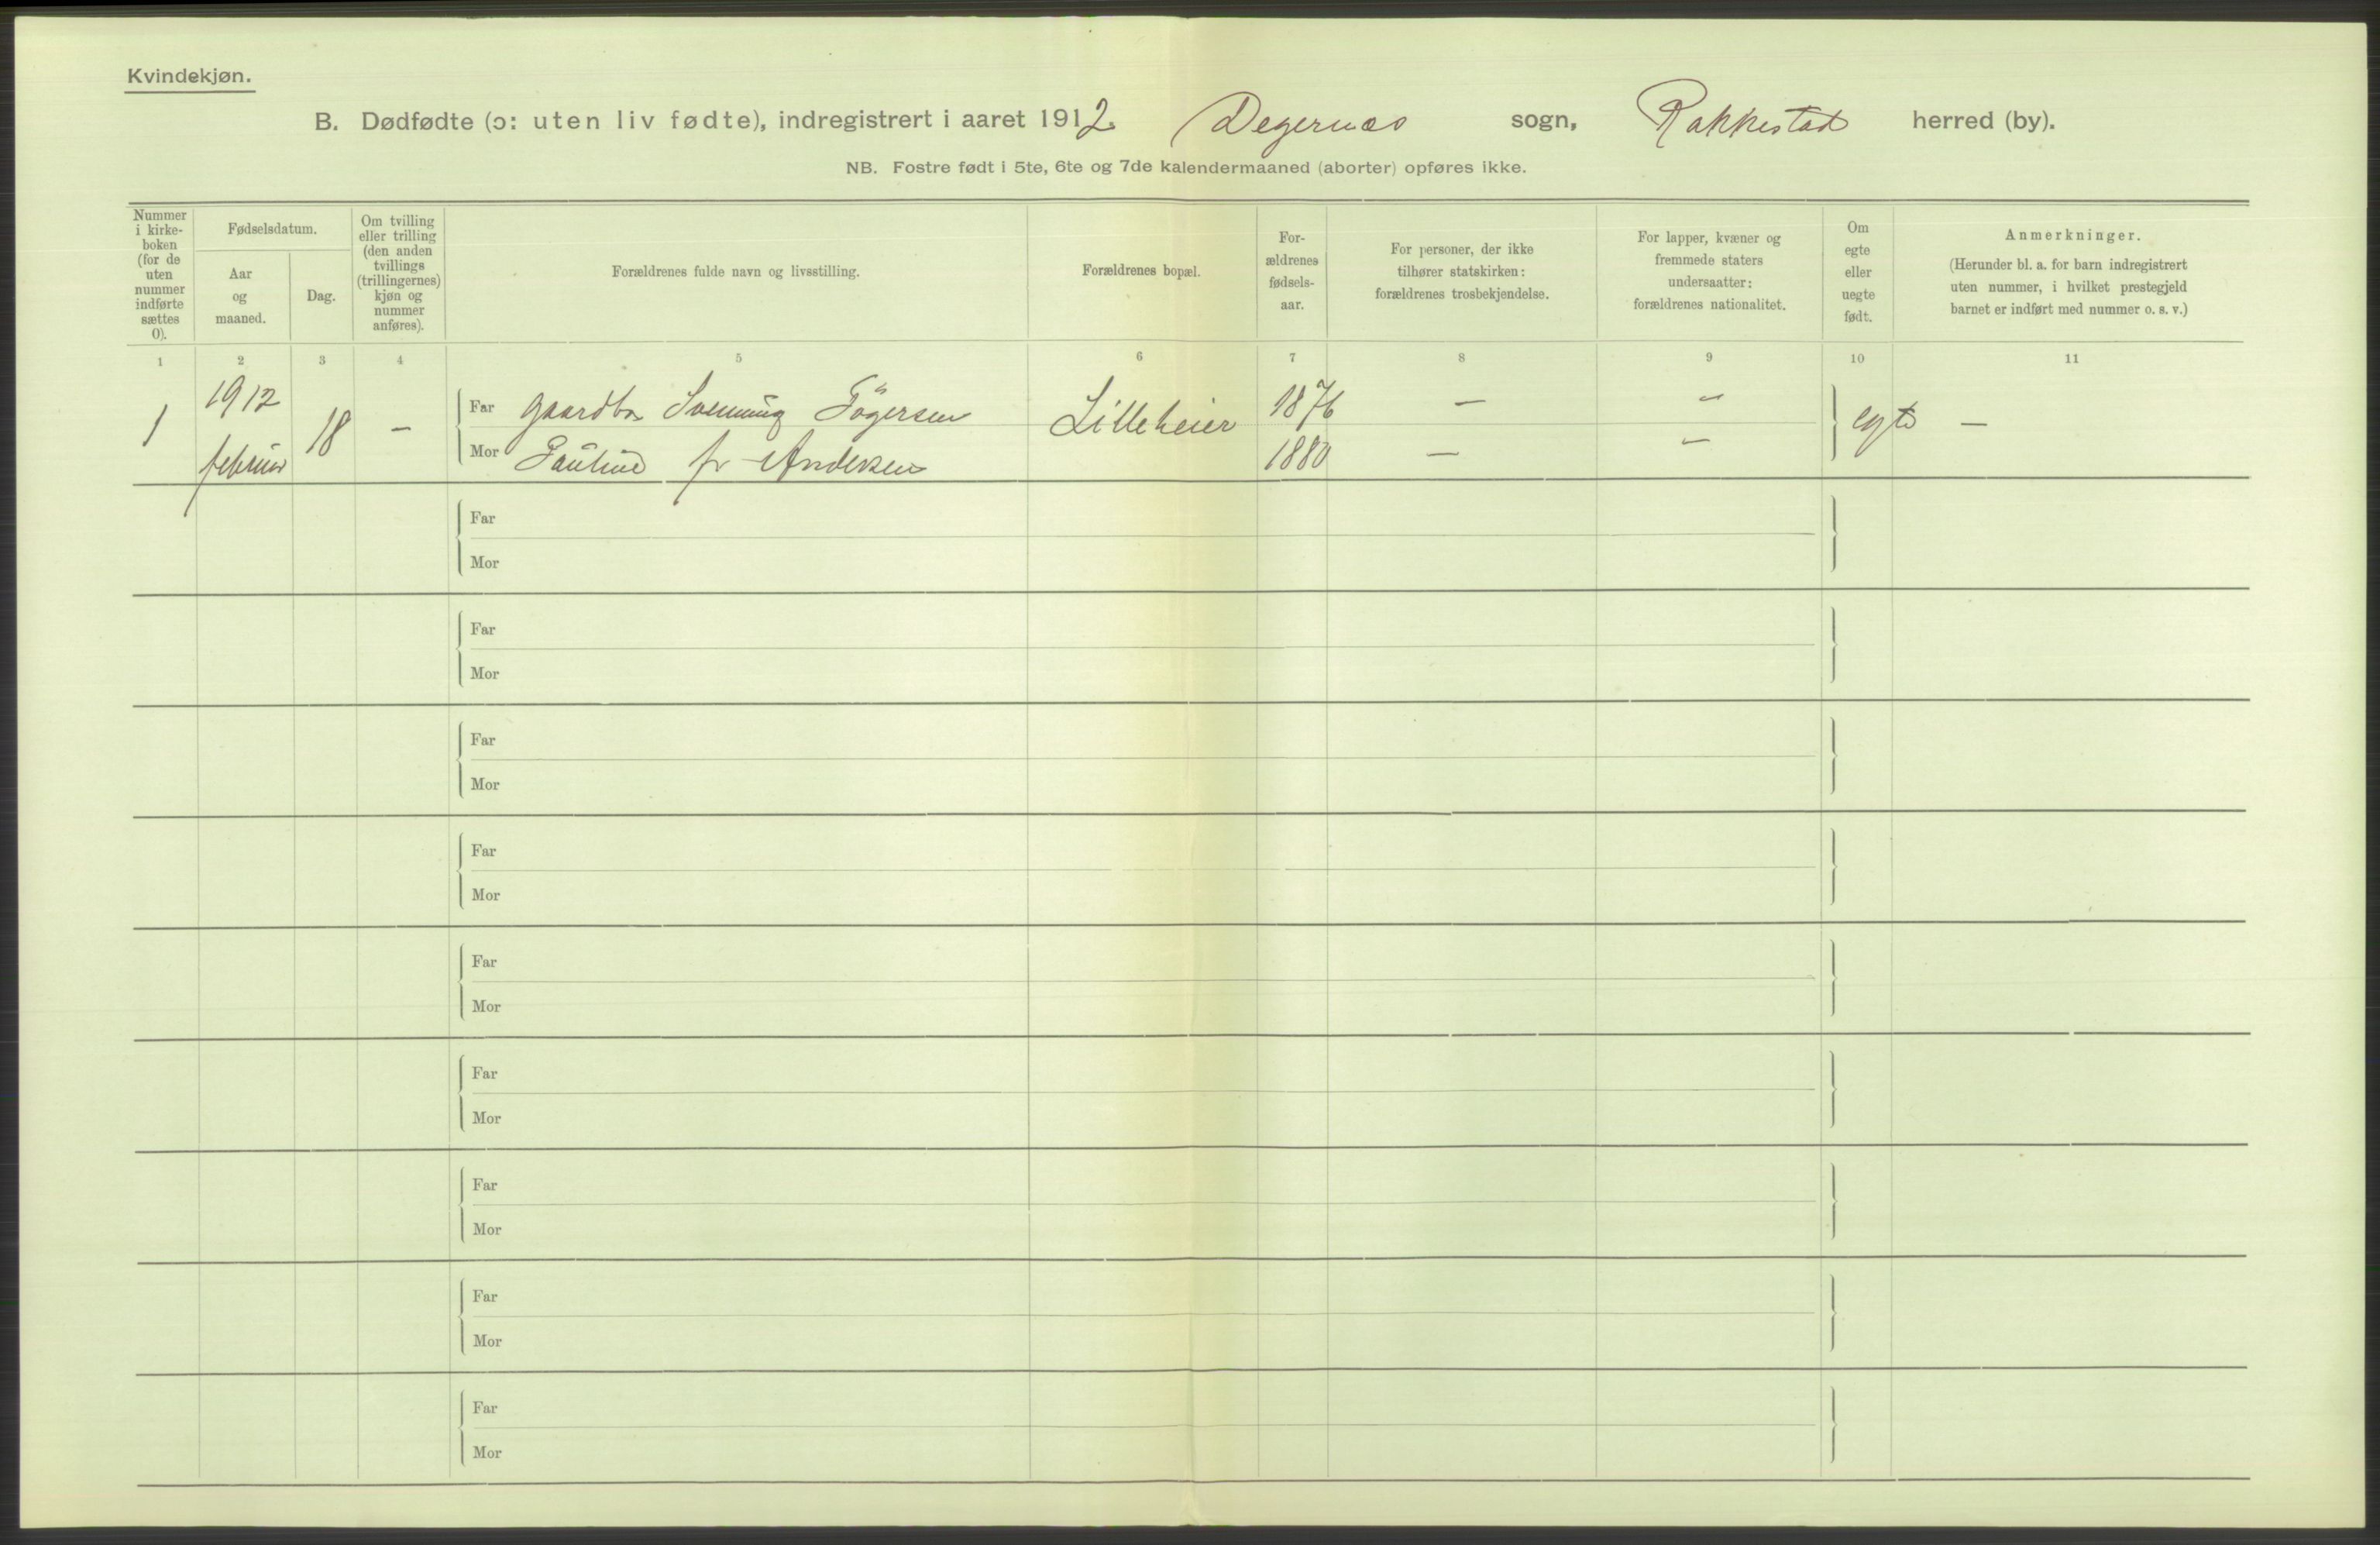 Kvindekjøn.
B. Dødfødte (ɔ: uten liv fødte), indregistrert i aaret 1912 Degernæs sogn, Rakkestad herred (by).
NB. Fostre født i 5te, 6te og 7de kalendermaaned (aborter) opføres ikke.
Nummer i kirke-boken (for de uten nummer indførte sættes 0).
Fødselsdatum.
Aar og maaned.
Dag.
Om tvilling eller trilling (den anden tvillings (trillingernes) kjøn og nummer anføres).
Forældrenes fulde navn og livsstilling.
Forældrenes bopæl.
For-ældrenes fødsels-aar.
For personer, der ikke tilhører statskirken: forældrenes trosbekjendelse.
For lapper, kvæner og fremmede staters undersaatter: forældrenes nationalitet.
Om egte eller uegte født.
Anmerkninger.
(Herunder bl. a. for barn indregistrert uten nummer, i hvilket prestegjeld barnet er indført med nummer o. s. v.)
1 2 3 4 5 6 7 8 9 10 11
1 1912 februar 18 –
Far gaardbr. Svenning Tögersen Lilleheier 1876 – – egte –
Mor Pauline f. Andersen 1880 – –
Far
Mor
Far
Mor
Far
Mor
Far
Mor
Far
Mor
Far
Mor
Far
Mor
Far
Mor
Far
Mor